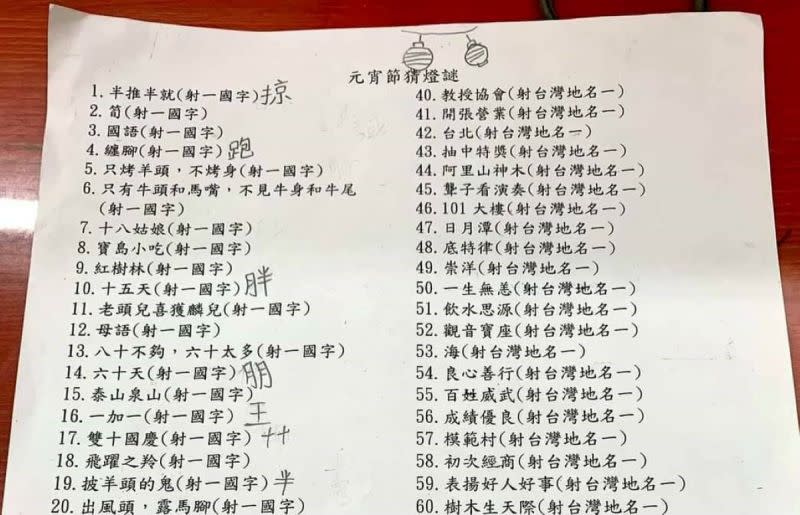 元宵節猜燈謎
1. 半推半就(射一國字)掠
2. 筍(射一國字)
3. 國語(射一國字)
4. 纏腳(射一國字)跑
5. 只烤羊頭，不烤身(射一國字)
6. 只有牛頭和馬嘴，不見牛身和牛尾
(射一國字)
7. 十八姑娘(射一國字)
8. 寶島小吃(射一國字)
9. 紅樹林(射一國字)
10. 十五天(射一國字)胖
11. 老頭兒喜獲麟兒(射一國字)
12. 母語(射一國字)
13. 八十不夠，六十太多(射一國字)
14. 六十天(射一國字)朋
15. 泰山泉山(射一國字)
16. 一加一(射一國字)王
17. 雙十國慶(射一國字)艹
18. 飛躍之羚(射一國字)
19. 披羊頭的鬼(射一國字)半
20. 出風頭，露馬腳(射一國字)
40. 教授協會(射台灣地名一)
41. 開張營業(射台灣地名一)
42. 台北(射台灣地名一)
43. 抽中特獎(射台灣地名一)
44. 阿里山神木(射台灣地名一)
45. 聾子看演奏(射台灣地名一)
46. 101 大樓(射台灣地名一)
47. 日月潭(射台灣地名一)
48. 底特律(射台灣地名一)
49. 崇洋(射台灣地名一)
50. 一生無恙(射台灣地名一)
51. 飲水思源(射台灣地名一)
52. 觀音寶座(射台灣地名一)
53. 海(射台灣地名一)
54. 良心善行(射台灣地名一)
55. 百姓威武(射台灣地名一)
56. 成績優良(射台灣地名一)
57. 模範村(射台灣地名一)
58. 初次經商(射台灣地名一)
59. 表揚好人好事(射台灣地名一)
60. 樹木生天際(射台灣地名一)